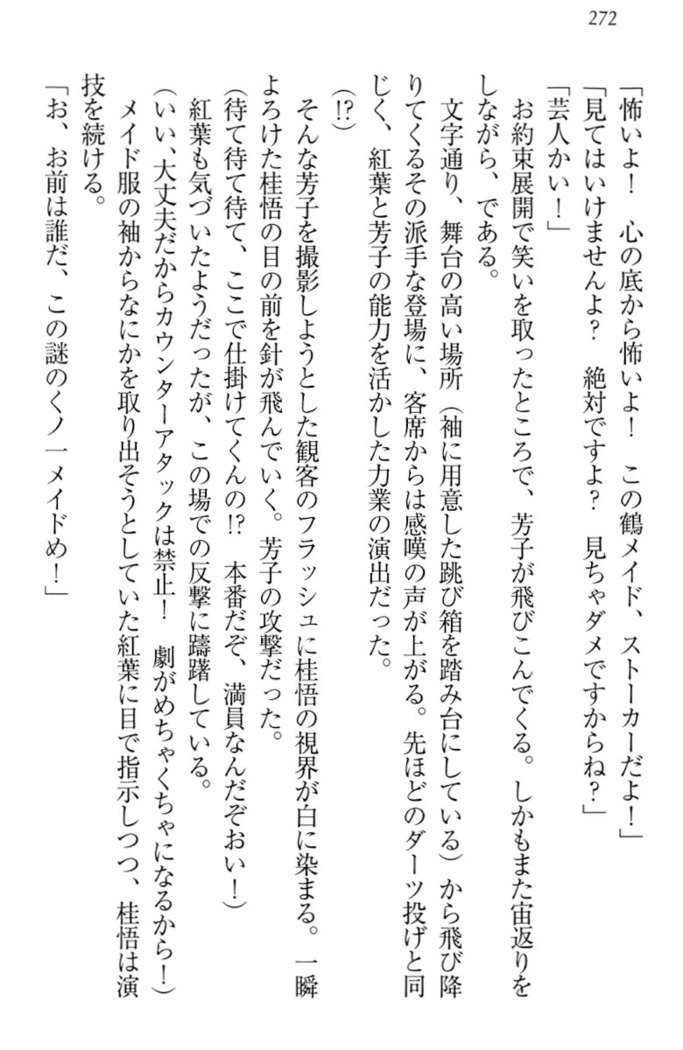 272
「怖いよ！　心の底から怖いよ！　この鶴メイド、ストーカーだよ！」
「見てはいけませんよ？　絶対ですよ？　見ちゃダメですからね？」
「芸人かい！」
　お約束展開で笑いを取ったところで、芳子が飛びこんでくる。しかもまた宙返りを
しながら、である。
　文字通り、舞台の高い場所（袖に用意した跳び箱を踏み台にしている）から飛び降
りてくるその派手な登場に、客席からは感嘆の声が上がる。先ほどのダーツ投げと同
じく、紅葉と芳子の能力を活かした力業の演出だった。
（!?）
　そんな芳子を撮影しようとした観客のフラッシュに桂悟の視界が白に染まる。一瞬
よろけた桂悟の目の前を針が飛んでいく。芳子の攻撃だった。
（待て待て待て、ここで仕掛けてくんの!?　本番だぞ、満員なんだぞおい！）
　紅葉も気づいたようだったが、この場での反撃に躊躇している。
（いい、大丈夫だからカウンターアタックは禁止！　劇がめちゃくちゃになるから！）
　メイド服の袖からなにかを取り出そうとしていた紅葉に目で指示しつつ、桂悟は演
技を続ける。
「お、お前は誰だ、この謎のくノ一メイドめ！」